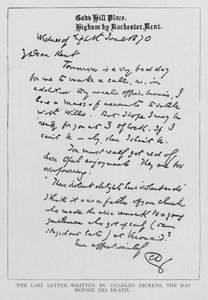 Gad's Hill Place,
Higham by Rochester, Kent.
Wednesday Eighth June 1870
My Dear Kent
Tomorrow is a very bad day
for me to make a call, as, in
addition to my usual office business, I
have a mass of accounts to settle
with Wills. But I hope I may be
ready for you at 3 o'clock. If I
can't be - why, then I shan't be.
You must really get rid of
those Opal enjoyments. They are too
overpowering:
"These violent delights have violent ends"
I think it was a father of your church
who made the wise remark to a young
gentleman who got up early (or
stayed out late) at Verona?
Ever affectionately
CD
THE LAST LETTER WRITTEN BY CHARLES DICKENS, THE DAY
BEFORE HIS DEATH.